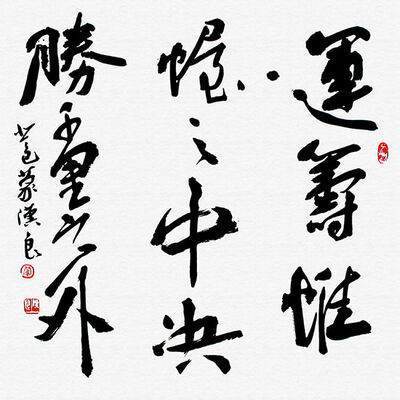 運籌帷
幄之中決
勝千里之外
蒙漢良